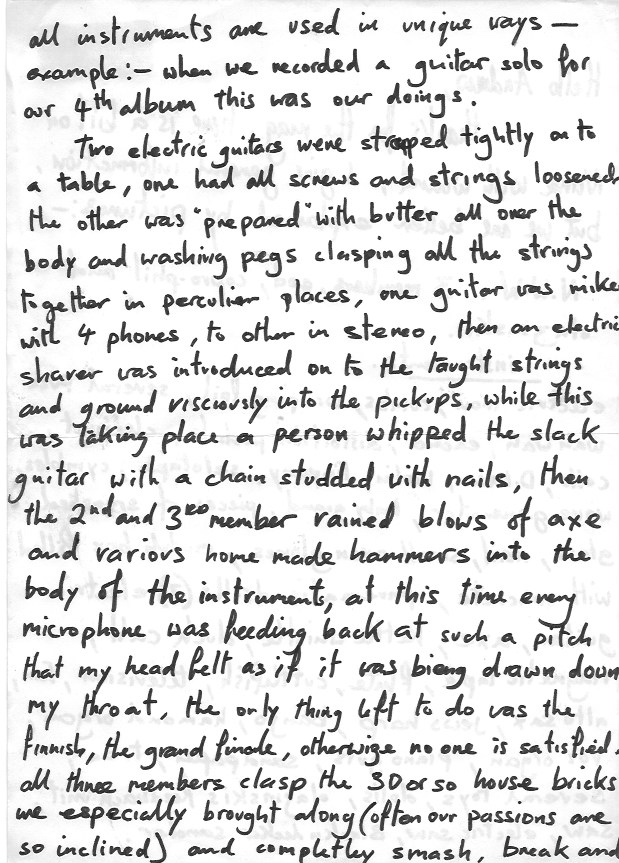 all instruments are used in unique ways —
example:- when we recorded a guitar solo for
our 4th album this was our doings.
Two electric guitars were strapped tightly on to
a table, one had all screws and strings loosened
the other was "prepared" with butter all over the
body and washing pegs clasping all the strings
together in perculier places, one guitar was mike
with 4 phones, to other in stereo, then an electric
shaver was introduced on to the taught strings
and ground visciously into the pickups, while this
was taking place a person whipped the slack
guitar with a chain studded with nails, then
the 2nd and 3RD member rained blows of axe
and various home made hammers into the
body of the instruments, at this time every
microphone was feeding back at such a pitch
that my head felt as if it was bieng drawn down
my throat, the only thing left to do was the
finnish, the grand finale, otherwize no one is satisfied.
all three members clasp the 30 or so house bricks
we especially brought along (often our passions are
so inclined) and completly smash, break and